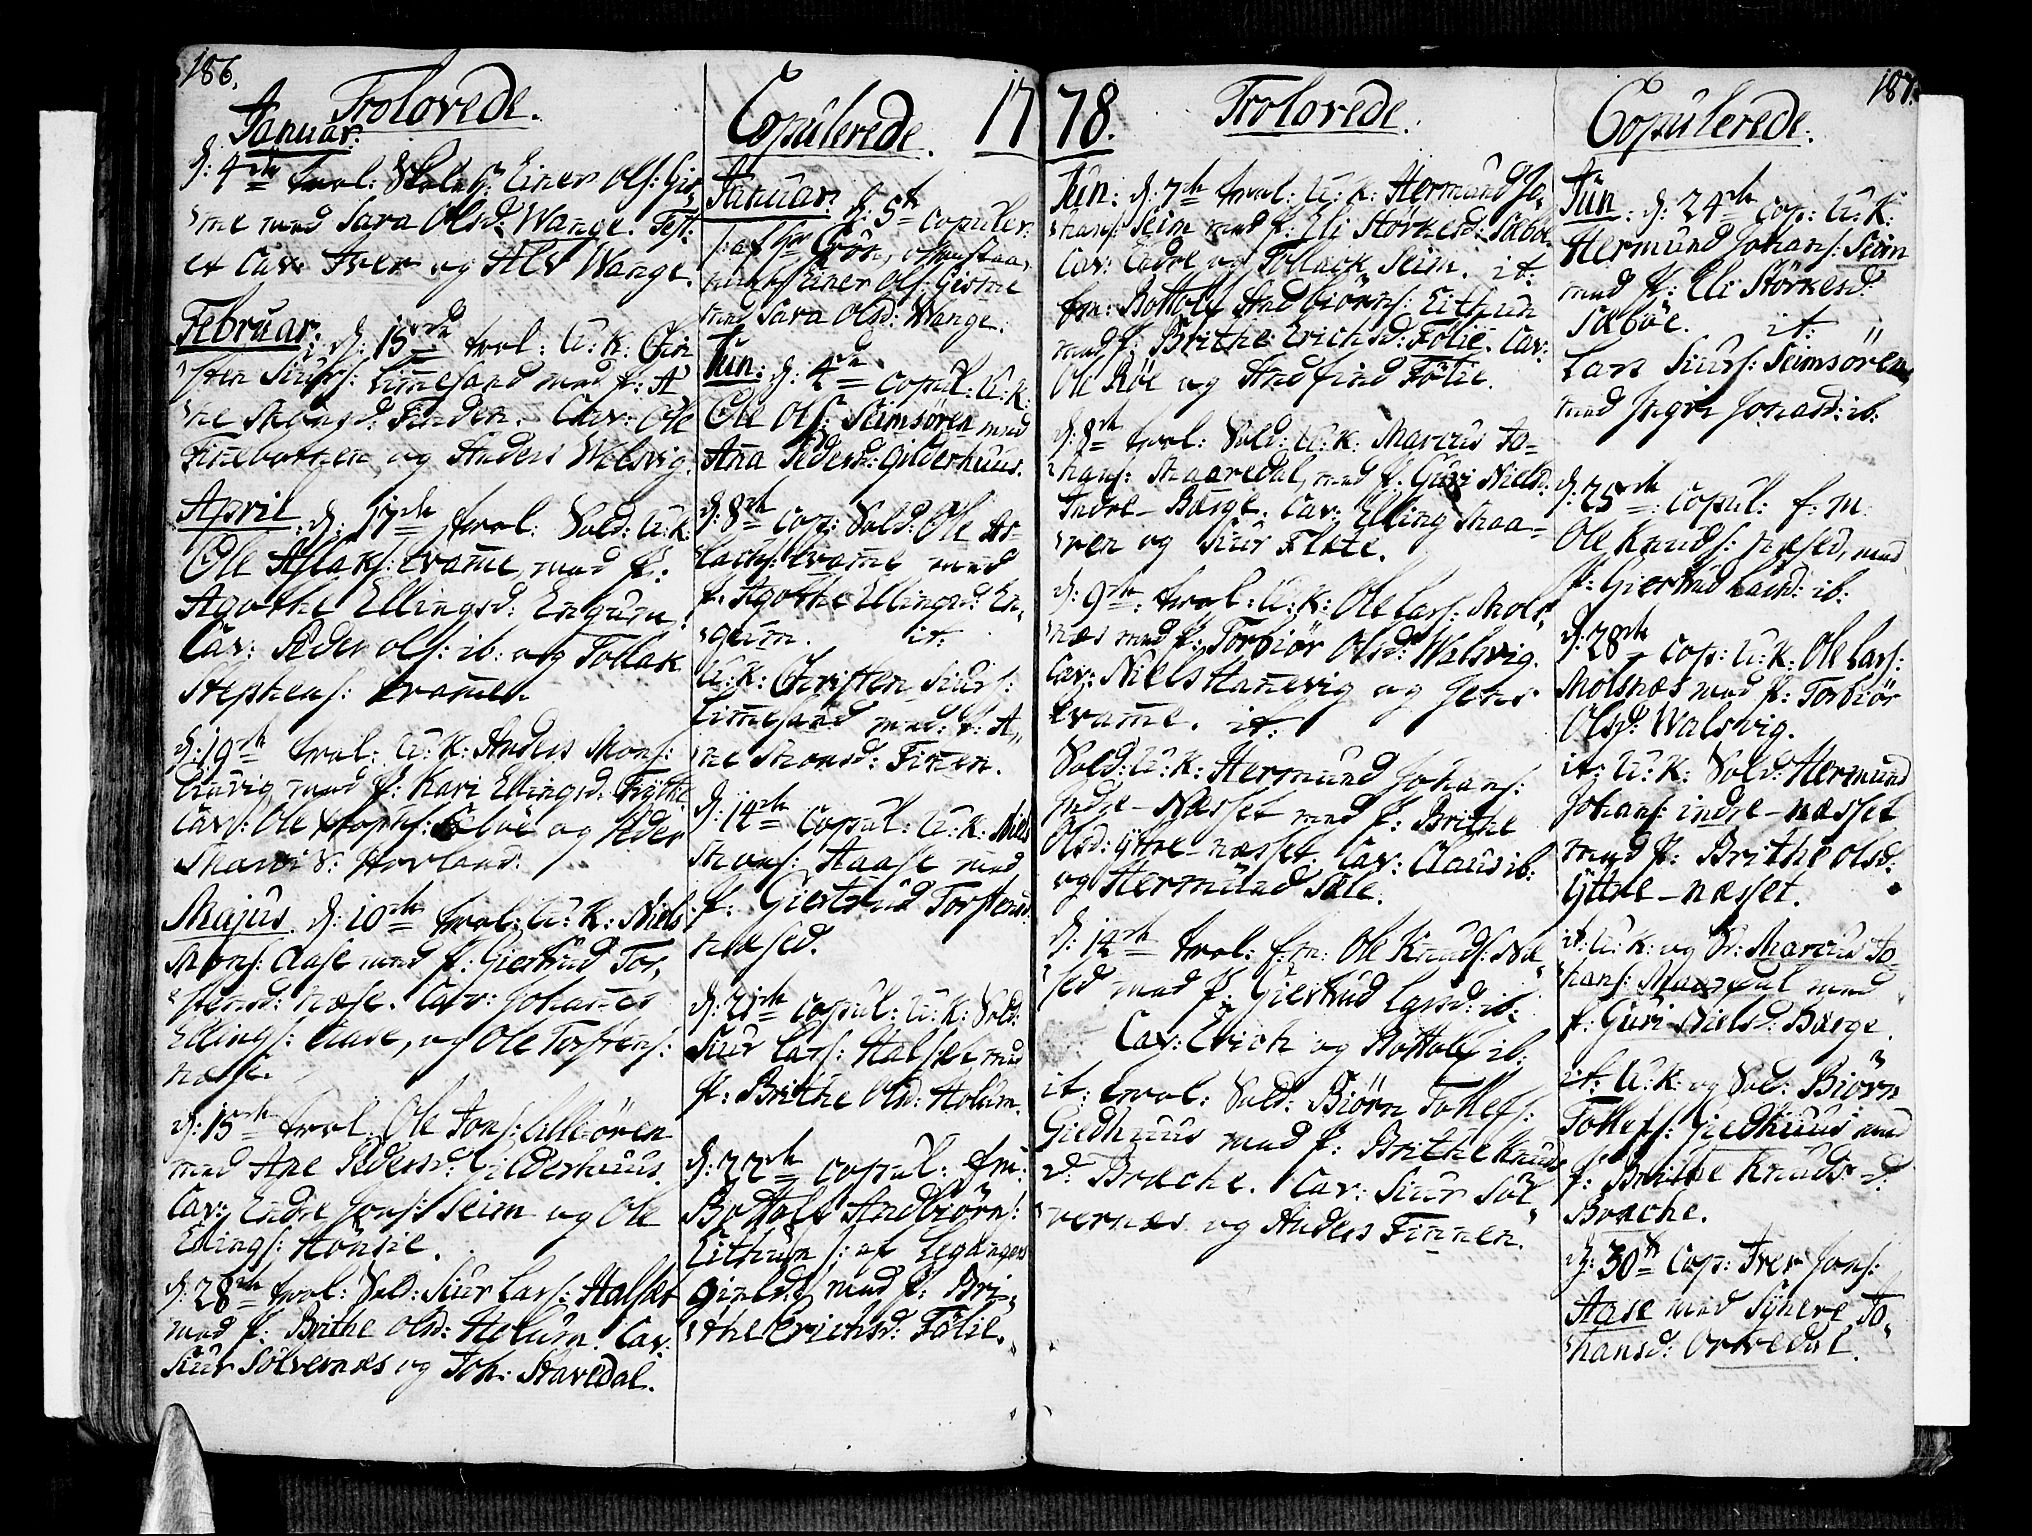 186.
Trolovede.
Januar.
d: 4de trol: Einer Ols: Gis-
me med Sara Olsd: Wange. Test:
et Cav: Iver og Alv Wange.
Februar: d: 15de trol: U: K: Chri
sten Siurs: Limmesand med P: A
ne Monsd: Finden. Cav: Ole
Finnebotnen og Anders Wolsvig.
April. d: 17de trol: Sold: U: K:
Ole Aslaks: Kvamme, med P:
Agothe Ellingsd: Engum.
Cav: Peder Ols: ib: og Tollak
Stephens: Kvammen
d: 19de trol: U: K: Anders Mons:
med P: Kari Ellingsd:
Cav: Ole og Peder
Hovland.
Majus. d: 10de trol: U: K: Niels
Mons: Aase med P: Giertrud Tor-
stensd: Næse. Cav: Johannes
Ellings: Aase, og Ole Torstens:
Næse.
d: 15de trol: Ole Jons: Alleören
med Ane Pedersd: Gilderhuus.
Cav: Endre Jons: Seim og Ole
Ellings: Hönsie.
d: 28de trol: Sold: Siur Lars: Halset
med P: Brithe Olsd: Holum. Cav:
Siur Sölvernes og Joh: Stavedal.
Copulerede. 17
Januar: d: 5te copuler:
af Hr Grön,
Einer Ols: Gisme
med Sara Olsd: Wange.
Jun: d: 4de copul: U: K:
Ole Ols: Seimsören med
Ana Pedersd: Gilderhuus.
d: 8de cop: Sold: Ole As-
lachs: Kvame med
P: Agothe Ellingsd: En-
geim. it:
U: K: Christen Siurs:
Limmesand med P: A-
ne Monsd: Finnen.
d: 14de copul: U: K: Niels
Mons: Haase med
P: Giertrud Torstensd:
næsed.
d: 21de copul: U: K: Sold:
Siur Lars: Halset med
P: Brithe Olsd: Holum.
d: 22de copul: fm:
Bottolf Andbiörns:
Eithun /: af Leganger
gield :/ med P: Bri-
the Erichsd: Fölie.
78.
Trolovede.
Jun: d: 7de trol: U: K: Hermund Jo-
hans: Seim med P: Eli Störkesd: Sæbøe
Cav: Endre og Tollack Seim. it:
fm: Bottolf Andbiörns: Eithun
med P: Brithe Erichsd: Fölie. Cav:
Ole Röe og Andfind Fölie.
d: 8de trol: Sold: U: K: Marcus Jo-
hans: Maaredal, med P: Guri Nielsd:
Indre-Børge. Cav: Elling Maa-
ren og Siur Flete.
d: 9de: trol: U: K: Ole Lars: Mols-
næs med P: Torbiör Olsd: Walsvig.
Cav: Niels Hamevig og Jens
Kvamme. it:
Sold: U: K: Hermund Johans:
Indre-Næsset med P: Brithe
Olsd: Yttre-næsset. Cav: Claus ib:
og Hermund Sæle.
d: 14de trol: f. m: Ole Knuds: Næ-
sed med P: Giertrud Larsd: ib:
Cav: Erich og Bottolf ib:
it: trol: Sold: Biörn Tollefs:
Giedhuus med P: Brithe Knuds
d: Brache. Cav: Siur Söl-
vernæs og Anders Finnen.
187.
Copulerede.
Jun. d: 24de cop: U: K:
Hermund Johans: Seim
med P: Eli Störkesd:
Sæbøe. it:
Lars Siurs: Seimsören
med Ingri Jonasd: ib:
d: 25de: copul: f. m:
Ole Knuds: Næsed, med
P: Giertrud Larsd: ib:
d: 28de cop: U: K: Ole Lars:
Molsnæs med P: Torbiör
Olsd: Walsvig.
it: U: K: Sold: Hermund
Johans: indre-næsset
med P: Brithe Olsd:
Yttre-næsset.
it: U: K: og Sr: Marcus Jo-
hans: Maaredal med
P: Guri Nielsd: Børge.
it: U: K: og Sold: Biörn
Tollefs: Giedhuus med
P: Brithe Knuds d:
Brache.
d: 30te Cop: Iver Jons:
Aase med Synere Jo-
hansd: Orvedal.